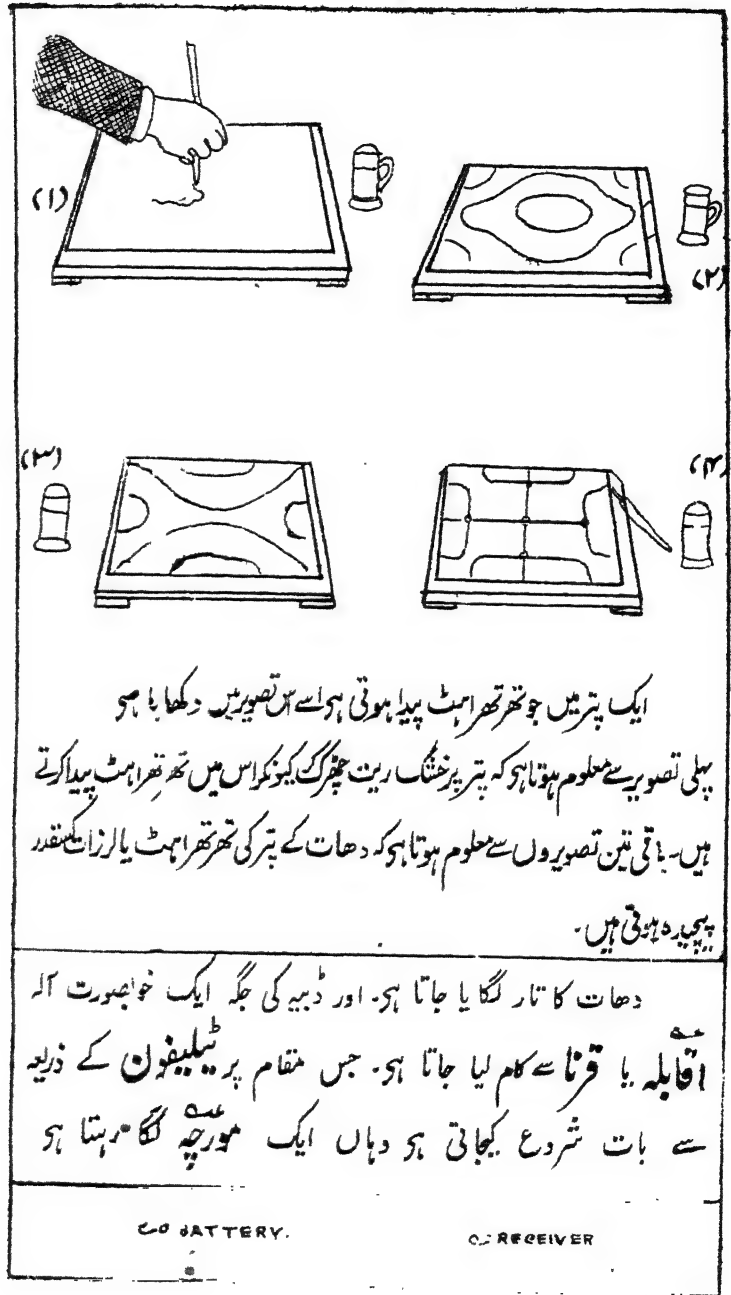 (۱)
(۲)
(۳)
(۴)
ایک پتر میں جو تھرتھراہٹ پیدا ہوتی ہی اسے اس تصویر میں دکھایا ہی
پہلی تصویر سے معلوم ہوتا ہی کہ پتر پر خشک ریت چھڑک کر کیونکر اس میں تھرتھراہٹ پیدا کرتے
ہیں۔ باقی تین تصویروں سے معلوم ہوتا ہی کہ دھات کے پتر کی تھرتھراہٹ یا لرزات کسقدر
پیچیدہ ہوتی ہیں۔
دھات کا تار لگایا جاتا ہی۔ اور ڈبیہ کی جگہ ایک خوبصورت آلہ
اقابلہ یا قرنا سے کام لیا جاتا ہی۔ جس مقام پر ٹیلیفون کے ذریعہ
سے بات شروع کیجاتی ہی وہاں ایک مورچہ لگا رہتا ہی
BATTERY. RECEIVER